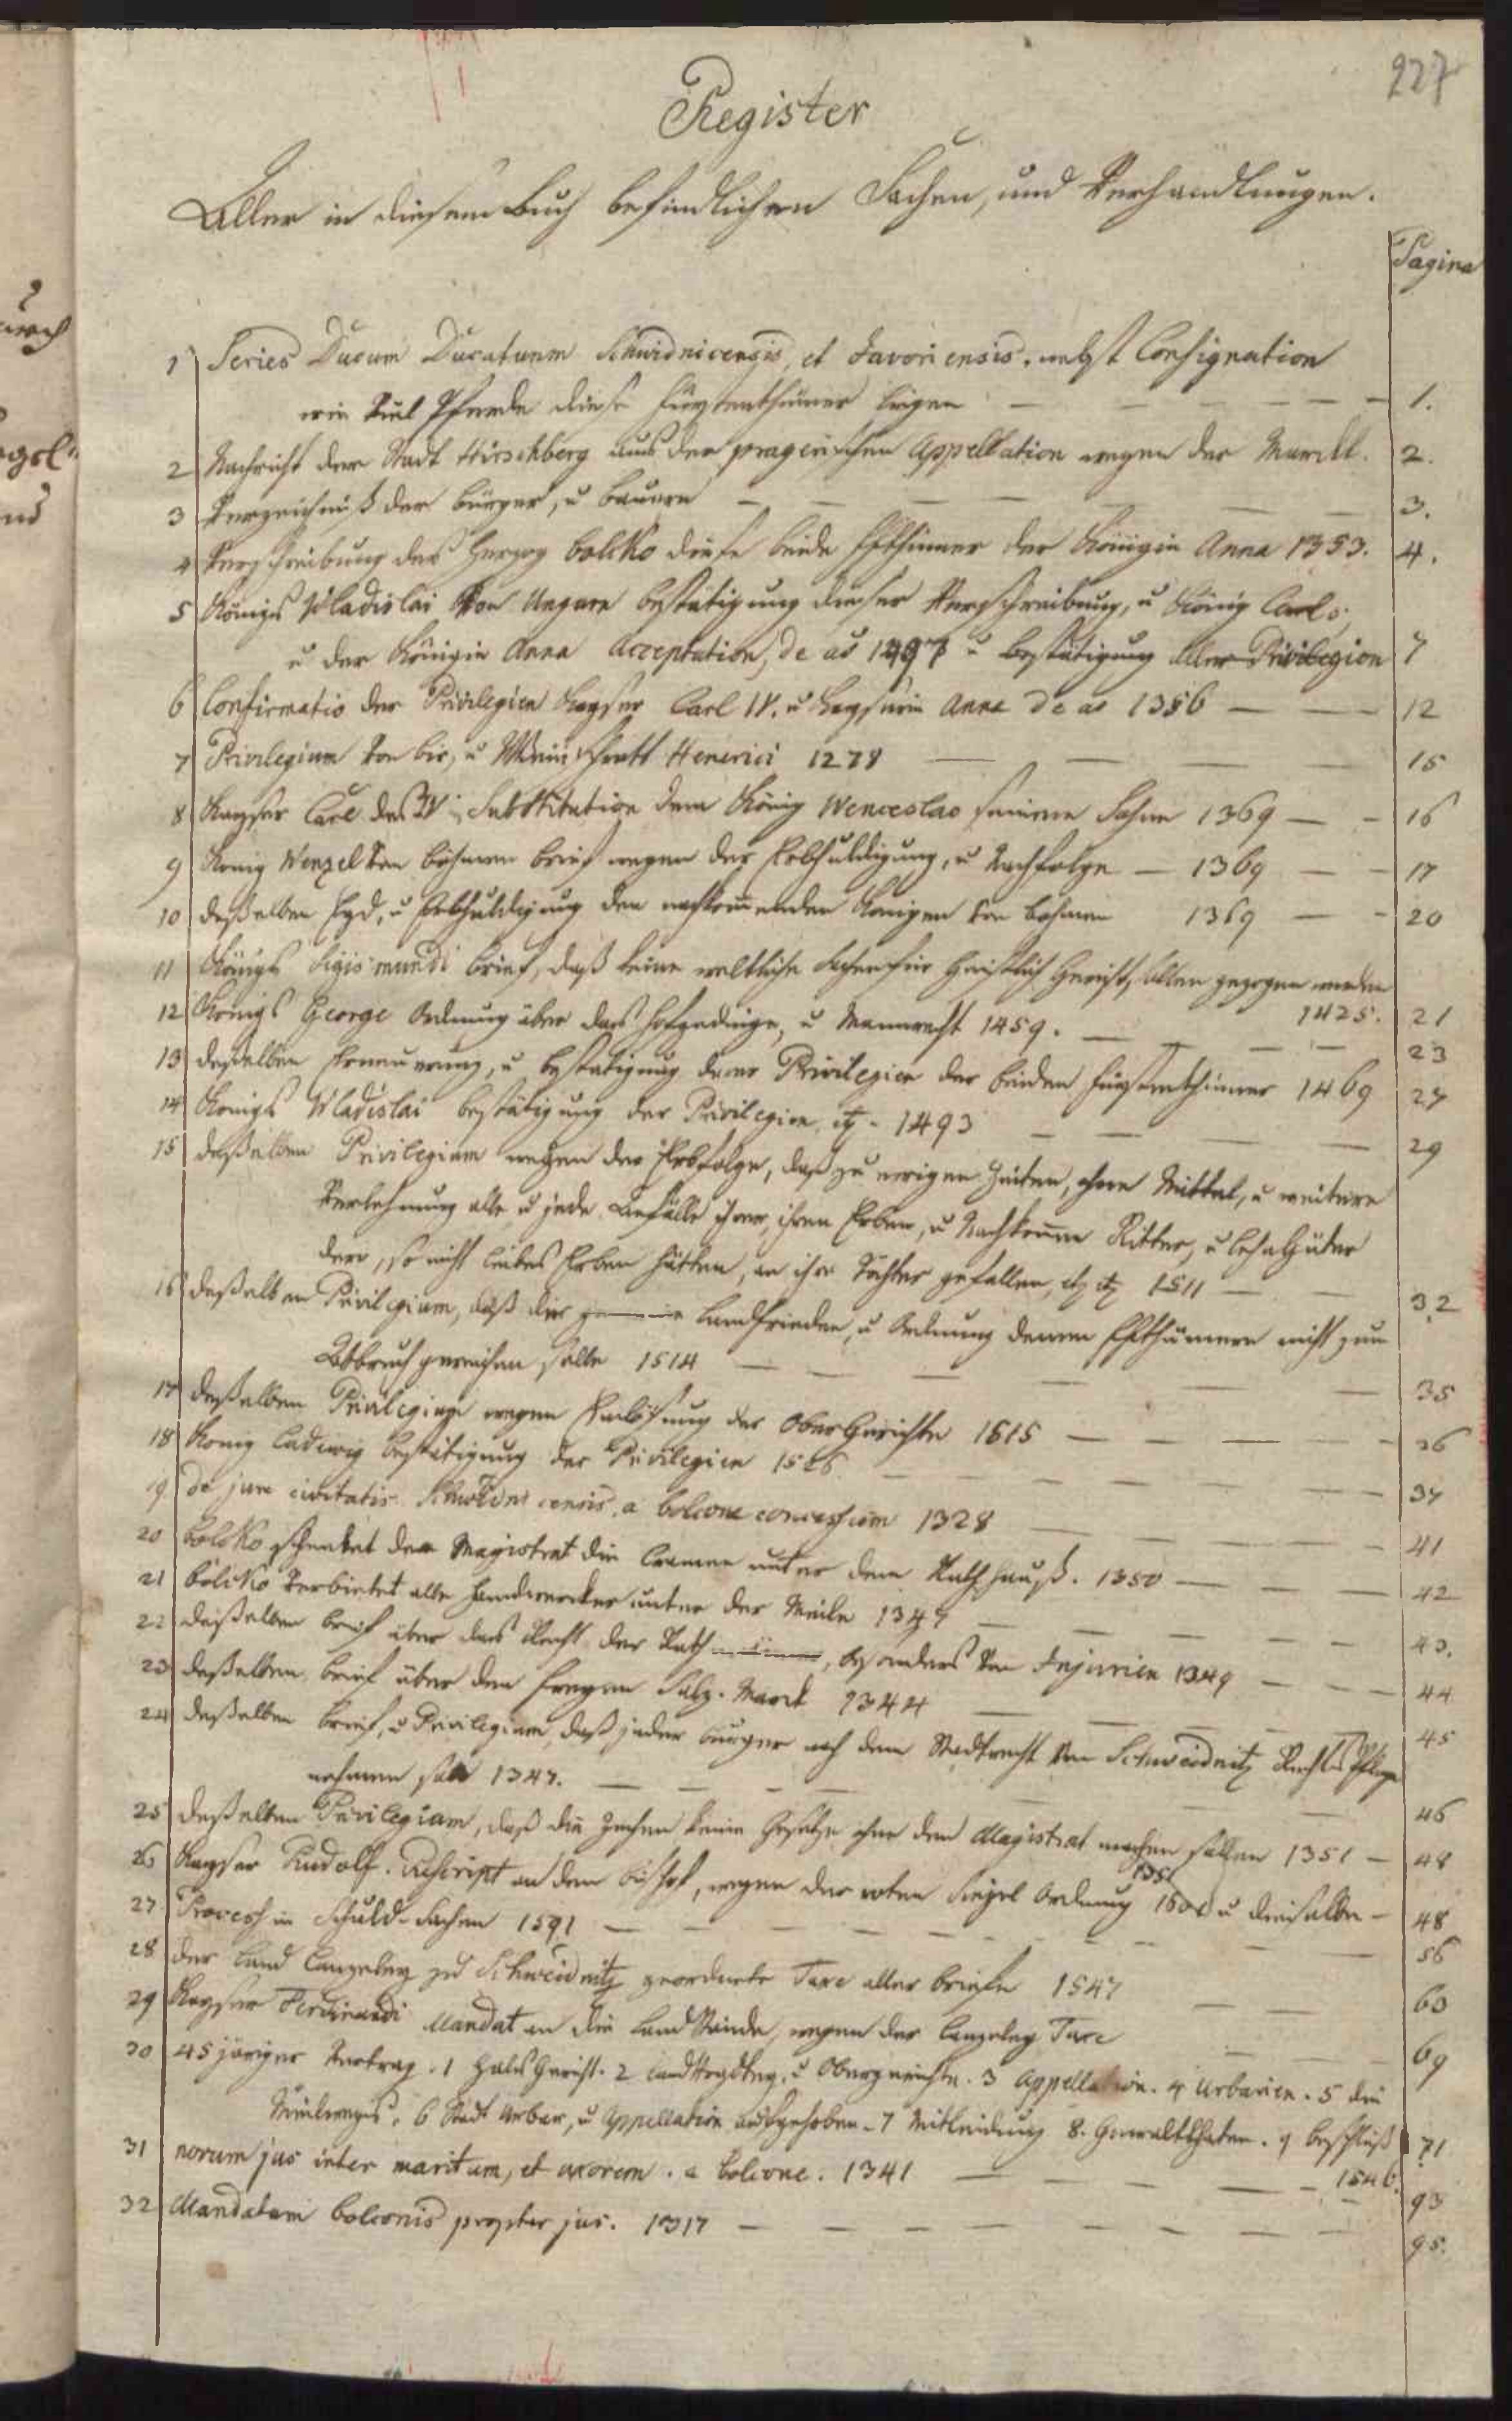 227
Register
Aller in diesem Buch befindlichen Sachen, und Verhandlungen.
Pagina
1 Series Ducum Ducatuum Schwidnicensis, et Javoriensis. nebst Consignation
wie viel Pferde diese Fürstenthümer liegen 1.
2 Nachricht der Stadt Hirschberg aus der pragerischen Appellation wegen der 2.
3 Verzeichniß der Bürger, u Bauern 3.
4 Verschreibung des Herzog bolcko diese beide Fsthümer der Königin Anna 1353. 4.
5 Königs Vladislai von Ungarn bestätigung dieser Verschreibung, u König Carls,
u der Königin Anna Acceptation, de ao 1497 u bestätigung aller Privilegien 7
6 Confirmatio der Privilegien Kayser Carl IV. u Kayserin Anna de ao 1356 12
7 Privilegium von bir, u Wein Henerici 1278 15
8 Kayser Carl des IV. Substitution dem König Wenceslao seinem Sohne 1369 16
9 König Wenzel von böhmen brief wegen der Erbhuldigung, u Nachfolge 1369 17
10 deßelben Eyd, u Erbhuldigung den nachkommenden Königen von böhmen 1369 20
11 Königs Sigismundi brief, daß keine weltliche Sachen für Geistlich Gericht, sollen gezogen werden
1425. 21
12 Königs George Ordnung über das Hofgedinge, u Mannrecht 1459. 23
13 deßelben Erneuerung, u bestätigung derer Privilegien der beiden Fürstenthümer 1469 27
14 Königs Vladislai bestätigung der Privilegien, etz. 1493 29
15 deßelben Privilegium wegen der Erbfolge, daß zu ewigen Zeiten, ohne Mittel, u weitere
Verlehnung alle u jede Anfälle ihrer, ihren Erben, u Nachkommen Ritter, u Lehngüter
derer, so nicht leibes Erben hätten, an ihre Töchter gefallen, etz etz 1511 32
16 deßelben Privilegium, daß die Landfrieden, u Ordnung denen Fsthümern nicht zum
Abbruch gereichen solle 1514 35
17 deßelben Privilegium wegen der Ober Gerichte 1515 36
18 König Ludwig bestätigung der Privilegien 1526 37
19. de jure civitatis censis, a bolcone concessum 1328 41
20 bolcko schenket dem Magistrat die Cramen unter dem Rathhauß. 1350 42
21 bolcko verbietet alle Handwercker unter der Meile 1347 43.
22 deßelben brief über das Recht der Rath , besonders von Injurien 1349 44
23 deßelben brief über den freyen Salz-Marck 1344 45
24 deßelben brief, u Privilegium, daß jeder bürger nach dem Stadtrecht von Schweidnitz Rechts Pflege
nehmen soll 1347. 46
25 deßelben Privilegium, daß die Zechen keine Gesetze ohne dem Magistrat machen sollen 1351 48
1351
26 Kayser Rudolf. Rescript an den bischof, wegen der roten Siegel Ordnung u dieselbe 48
27 Process in Schuld-Sachen 1591 56
28 der Land Canzeley zu Schweidnitz geordnete Taxe aller briefe 1547 60
29 Kayser Ferdinandi Mandat an die Land Stände, wegen der Canzeley Taxe 69
30 45 järiger Vertrag. 1 Hals Gericht. 2 Landvogdtey, u Obergerichte. 3 Appellation. 4 Urbarien. 5 die
Meilweges. 6 Stadt Urbar, u Appellation aufgehoben. 7 Mitleidung 8. Gewaltthaten. 9 beschluß 71
1546.
31 novum jus inter maritum, et uxorem. a bolcone. 1341 93
32 Mandatum bolconis propter jus. 1317 95.